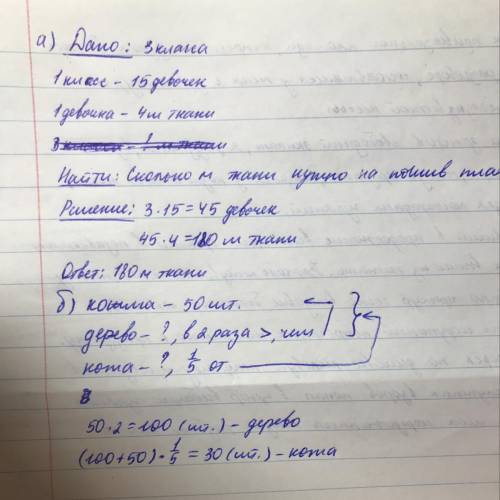 а) Дано: 3 класса
1 класс – 15 девочек
1 девочка – 4 м ткани
Найти: Сколько м ткани нужно на пошив пла
Решение: 3 · 15 = 45 девочек
45 · 4 = 180 м ткани
Ответ: 180 м ткани
б) кошма – 50 шт.
дерево – ?, в 2 раза >, чем
кожа – ?, 1/5 от
50 · 2 = 100 (шт.) – дерево
(100 + 50) · 1/5 = 30 (шт.) – кожа